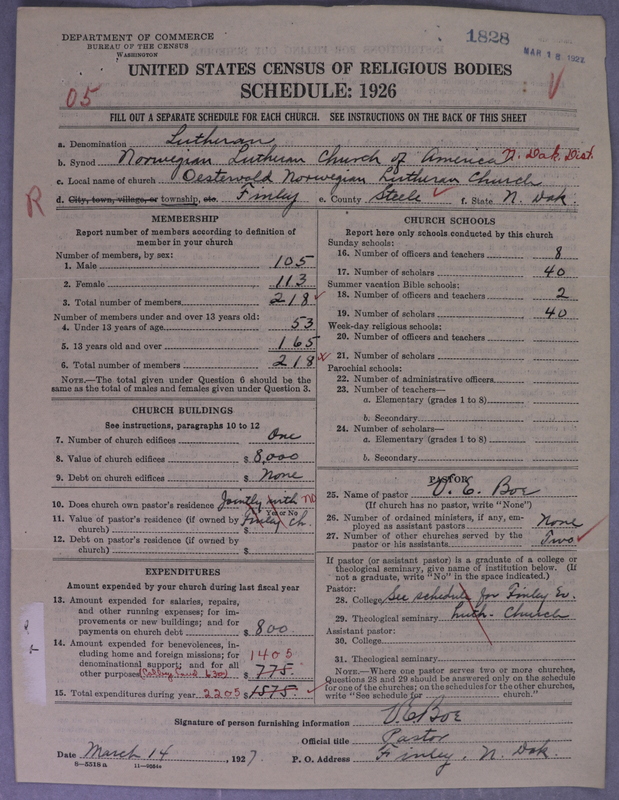 DEPARTMENT OF COMMERCE
BUREAU OF THE CENSUS
WASHINGTON
1828
MAR 18 1927
UNITED STATES CENSUS OF RELIGIOUS BODIES
SCHEDULE: 1926
05
FILL OUT A SEPARATE SCHEDULE FOR EACH CHURCH. SEE INSTRUCTIONS ON THE BACK OF THIS SHEET
a. Denomination Lutheran
b. Synod Norwegian Lutheran Church of America N. Dak. Dist.
c. Local name of church Oestervold Norwegian Lutheran Church
R
d. City, town, village, or township, etc. Finley e. County Steele f. State N. Dak.
MEMBERSHIP
Report number of members according to definition of member in your church
Number of members, by sex:
1. Male 105
2. Female 113
3. Total number of members 218
Number of members under and over 13 years old:
4. Under 13 years of age 53
5. 13 years old and over 165
6. Total number of members 218
NOTE.—The total given under Question 6 should be the same as the total of males and females given under Question 3.
CHURCH BUILDINGS
See instructions, paragraphs 10 to 12
7. Number of church edifices One
8. Value of church edifices $ 8,000
9. Debt on church edifices $ None
10. Does church own pastor's residence Jointly with No
Yes or No
11. Value of pastor's residence (if owned by church) $ Finley Ch.
12. Debt on pastor's residence (if owned by church) $
EXPENDITURES
Amount expended by your church during last fiscal year
13. Amount expended for salaries, repairs, and other running expenses; for improvements or new buildings; and for payments on church debt $ 800
14. Amount expended for benevolences, including home and foreign missions; for denominational support; and for all other purposes 1405 $ 775
15. Total expenditures during year 2205 $ 1575
CHURCH SCHOOLS
Report here only schools conducted by this church
Sunday schools:
16. Number of officers and teachers 8
17. Number of scholars 40
Summer vacation Bible schools:
18. Number of officers and teachers 2
19. Number of scholars 40
Week-day religious schools:
20. Number of officers and teachers
21. Number of scholars
Parochial schools:
22. Number of administrative officers
23. Number of teachers—
a. Elementary (grades 1 to 8)
b. Secondary
24. Number of scholars—
a. Elementary (grades 1 to 8)
b. Secondary
PASTOR
25. Name of pastor V. E. Boe
(If church has no pastor, write "None")
26. Number of ordained ministers, if any, employed as assistant pastors None
27. Number of other churches served by the pastor or his assistants Two
If pastor (or assistant pastor) is a graduate of a college or theological seminary, give name of institution below. (If not a graduate, write "No" in the space indicated.)
Pastor:
28. College See schedule for Finley Ev.
29. Theological seminary Luth. Church
Assistant pastor:
30. College
31. Theological seminary
NOTE.—Where one pastor serves two or more churches, Questions 28 and 29 should be answered only on the schedule for one of the churches; on the schedules for the other churches, write "See schedule for church."
Signature of person furnishing information V. E. Boe
Official title Pastor
Date March 14, 1927. P. O. Address Finley, N. Dak.
8—5518a 11—9554a